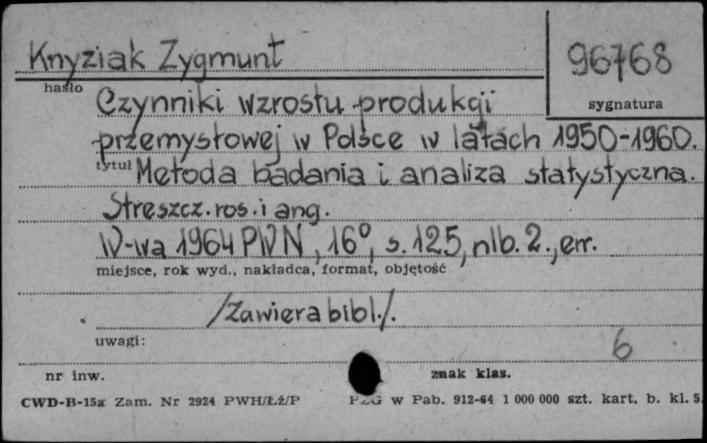 Knyziak Zygmunt
96768
hasło
sygnatura
Czynniki wzrostu produkcji
przemysłowej w Polsce w latach 1950-1960.
tytuł Metoda badania i analiza statystyczna.
Streszcz. ros. i ang.
W-wa 1964 PWN, 16°, s. 125, nlb. 2., err.
miejsce, rok wyd., nakładca, format, objętość
/Zawiera bibl./.
uwagi:
6
nr inw.
znak klas.
CWD-B-15x Zam. Nr 2924 PWH/Łż/P
PZG w Pab. 912-64 1 000 000 szt. kart. b. kl. 5